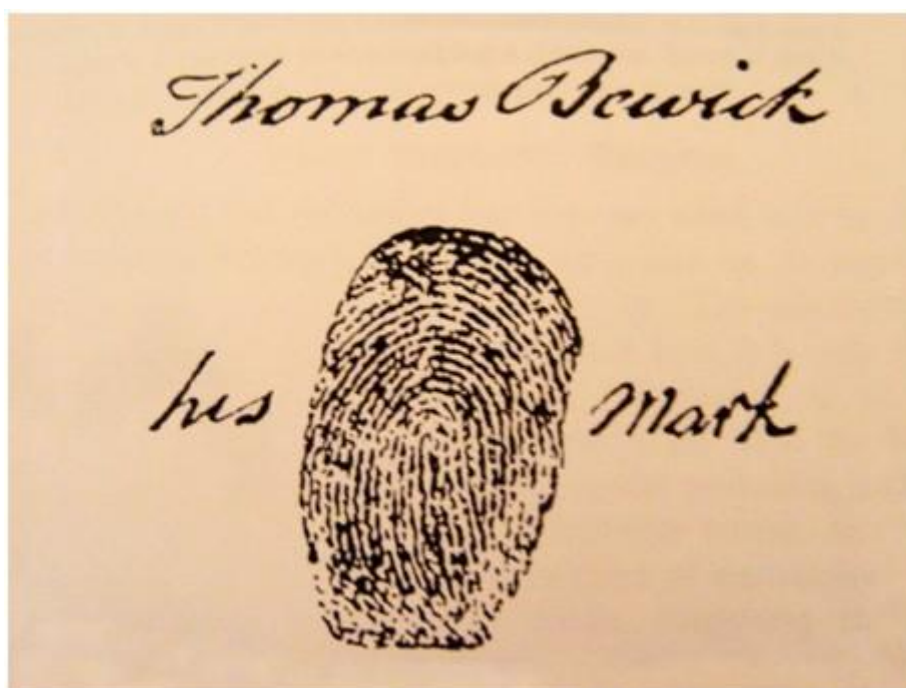 Thomas Bewick
his mark